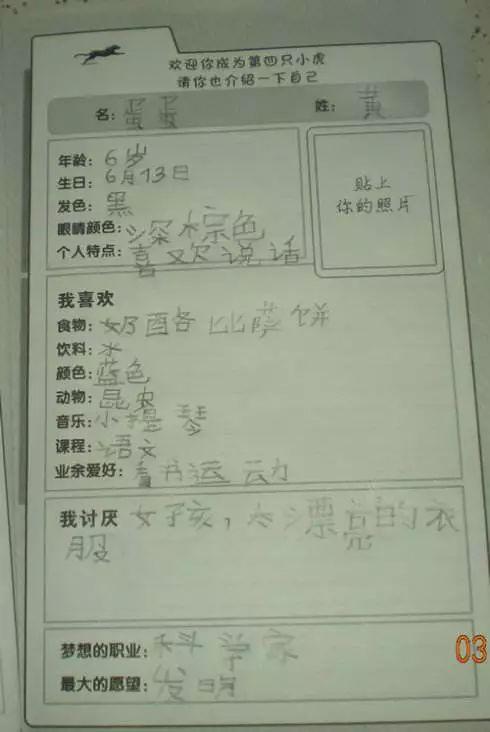 欢迎你成为第四只小虎
请你也介绍一下自己
名: 蛋蛋 姓: 黄
年龄: 6岁
生日: 6月13日
发色: 黑
眼睛颜色: 深棕色
个人特点: 喜欢说话
贴上
你的照片
我喜欢
食物: 奶酪 比萨饼
饮料: 水
颜色: 蓝色
动物: 昆虫
音乐: 小提琴
课程: 语文
业余爱好: 看书运动
我讨厌 女孩，太漂亮的衣
服
梦想的职业: 科学家
最大的愿望: 发明
03